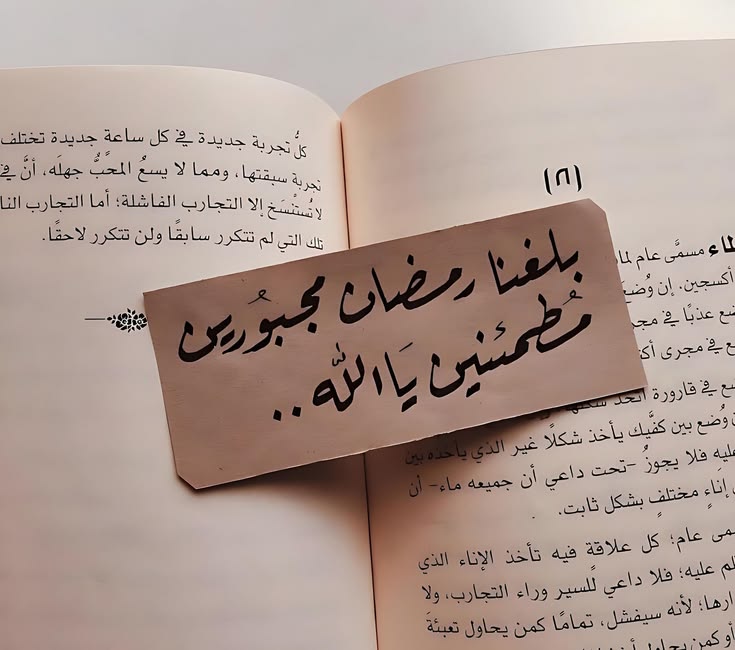 كلُّ تجربة جديدة في كل ساعةٍ جديدة تختلف
تجربة سبقتها، ومما لا يسعُ المحبُّ جهلَه، أنَّ في
لا تُستنسَخ إلا التجارب الفاشلة؛ أما التجارب النا
تلك التي لم تتكرر سابقًا ولن تتكرر لاحقًا.
بلغنا رمضان مجبُورين
مُطمئنين يَا الله..
(٨)
لماء مسمَّى عام لما
أكسجين. إن وُضعَ
ضع عذبًا في مجر
ع في مجرى أكـ
ضع في قارورة اتخذ شكلها
وُضع بين كفَّيك يأخذ شكلًا غير الذي يأخذه بين
عليه فلا يجوزُ -تحت داعي أن جميعه ماء- أن
إناءٍ مختلفٍ بشكل ثابت.
مى عام؛ كل علاقةٍ فيه تأخذ الإناء الذي
لم عليه؛ فلا داعي للسير وراء التجارب، ولا
ارها؛ لأنه سيفشل، تمامًا كمن يحاول تعبئةَ
أو كمن يحاول